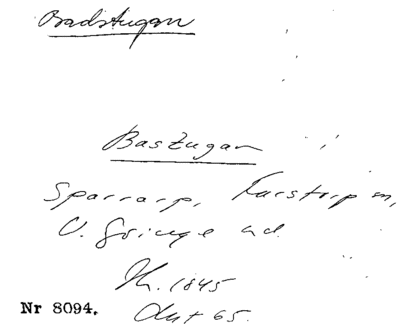 Badstugan
Baszugan
Sparrarp, Farstorp sn,
V. Göinge hd.
Th. 1845
Nr 8094.